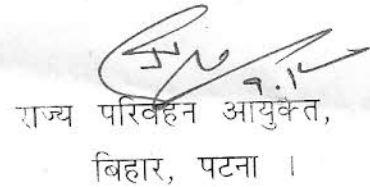 राज्य परिवहन आयुक्त,
बिहार, पटना ।